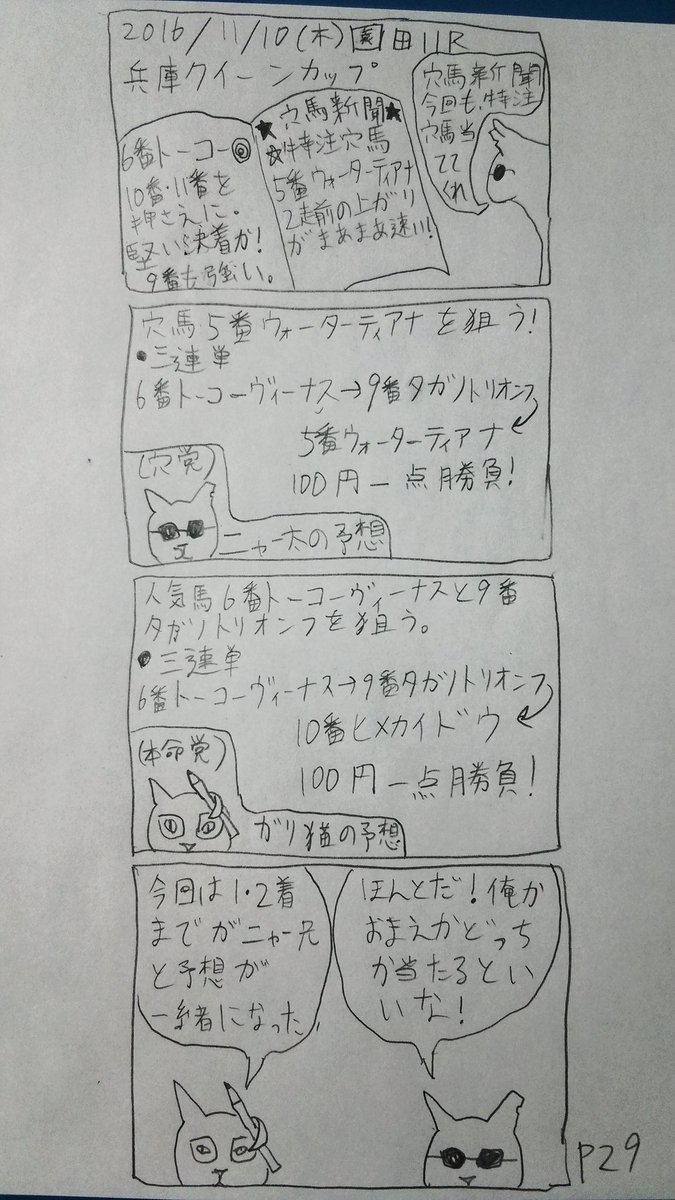 2016/11/10(木)園田11R
兵庫クイーンカップ
6番トーコー◎
10番・11番を
押さえに。
堅い決着か!
9番も強い。
★穴馬新聞★
☆特注穴馬
5番ウォーターティアナ
2走前の上がり
がまあまあ速い!
穴馬新聞
今回も特注
穴馬当
てて
くれ
穴馬5番ウォーターティアナを狙う!
●三連単
6番トーコーヴィーナス→9番タガノトリオンフ
5番ウォーターティアナ
100円一点勝負!
(穴党)
ニャー太の予想
人気馬6番トーコーヴィーナスと9番
タガノトリオンフを狙う。
●三連単
6番トーコーヴィーナス→9番タガノトリオンフ
10番ヒメカイドウ
100円一点勝負!
(本命党)
ガリ猫の予想
今回は1・2着
までがニャー兄
と予想が
一緒になった
ほんとだ!俺か
おまえかどっち
か当たるとい
いな!
P29